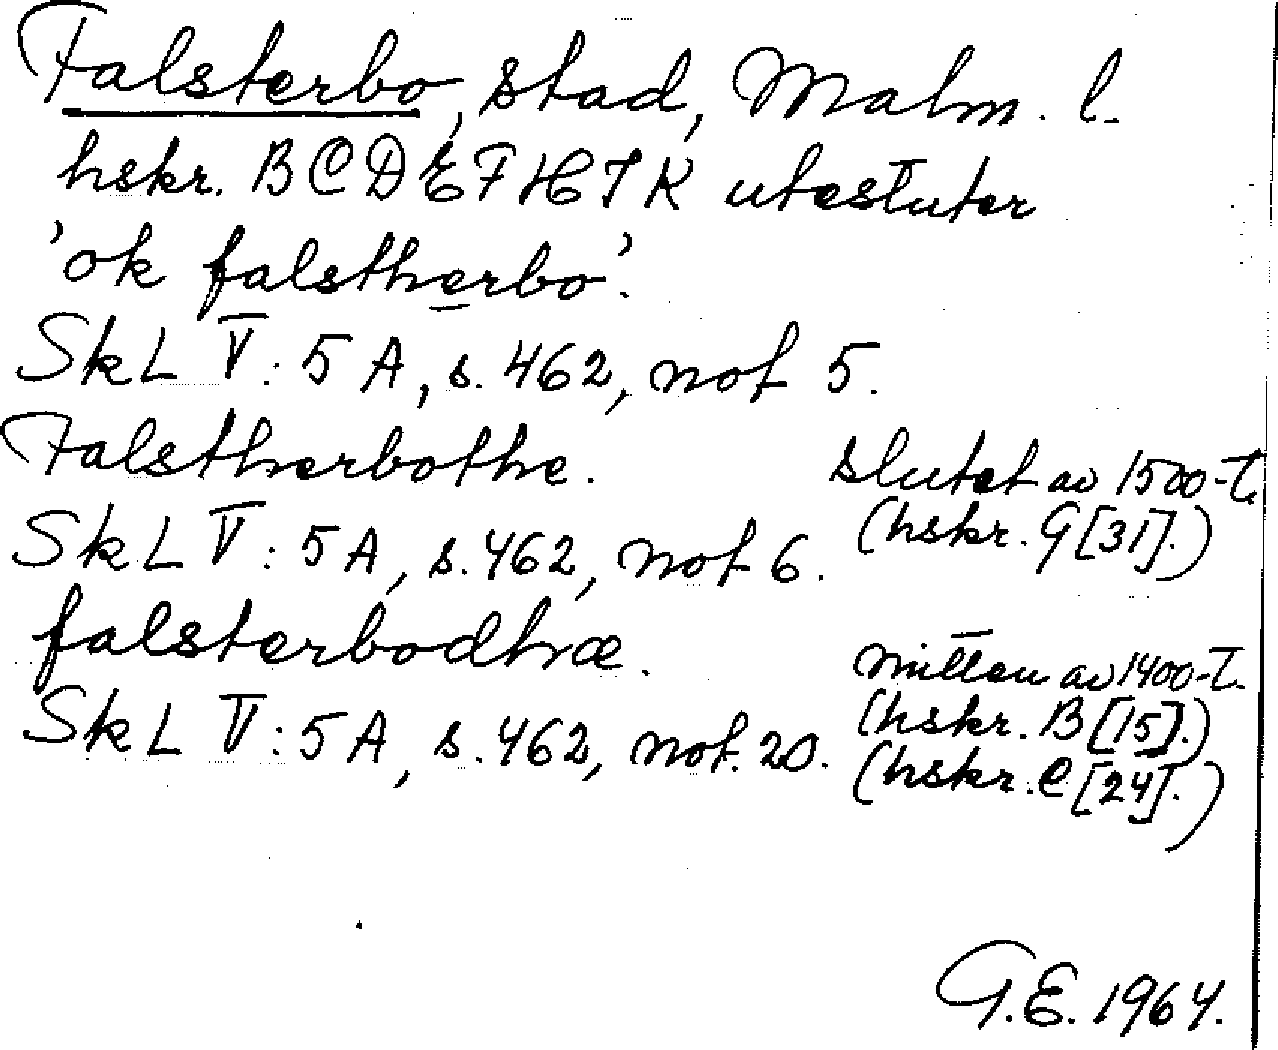 Falsterbo, stad, Malm. l.
hskr. BCDEFHIK utesluter
'ok falstherbo'.
SkL V: 5 A, s. 462, not 5.
Falstherbothe.
slutet av 1500-t.
(hskr. G [31].)
SkL V: 5 A, s. 462, not 6.
falsterbodhæ.
mitten av 1400-t.
(hskr. B [15].)
SkL V: 5 A, s. 462, not. 20.
(hskr. C [24].)
G.E. 1964.